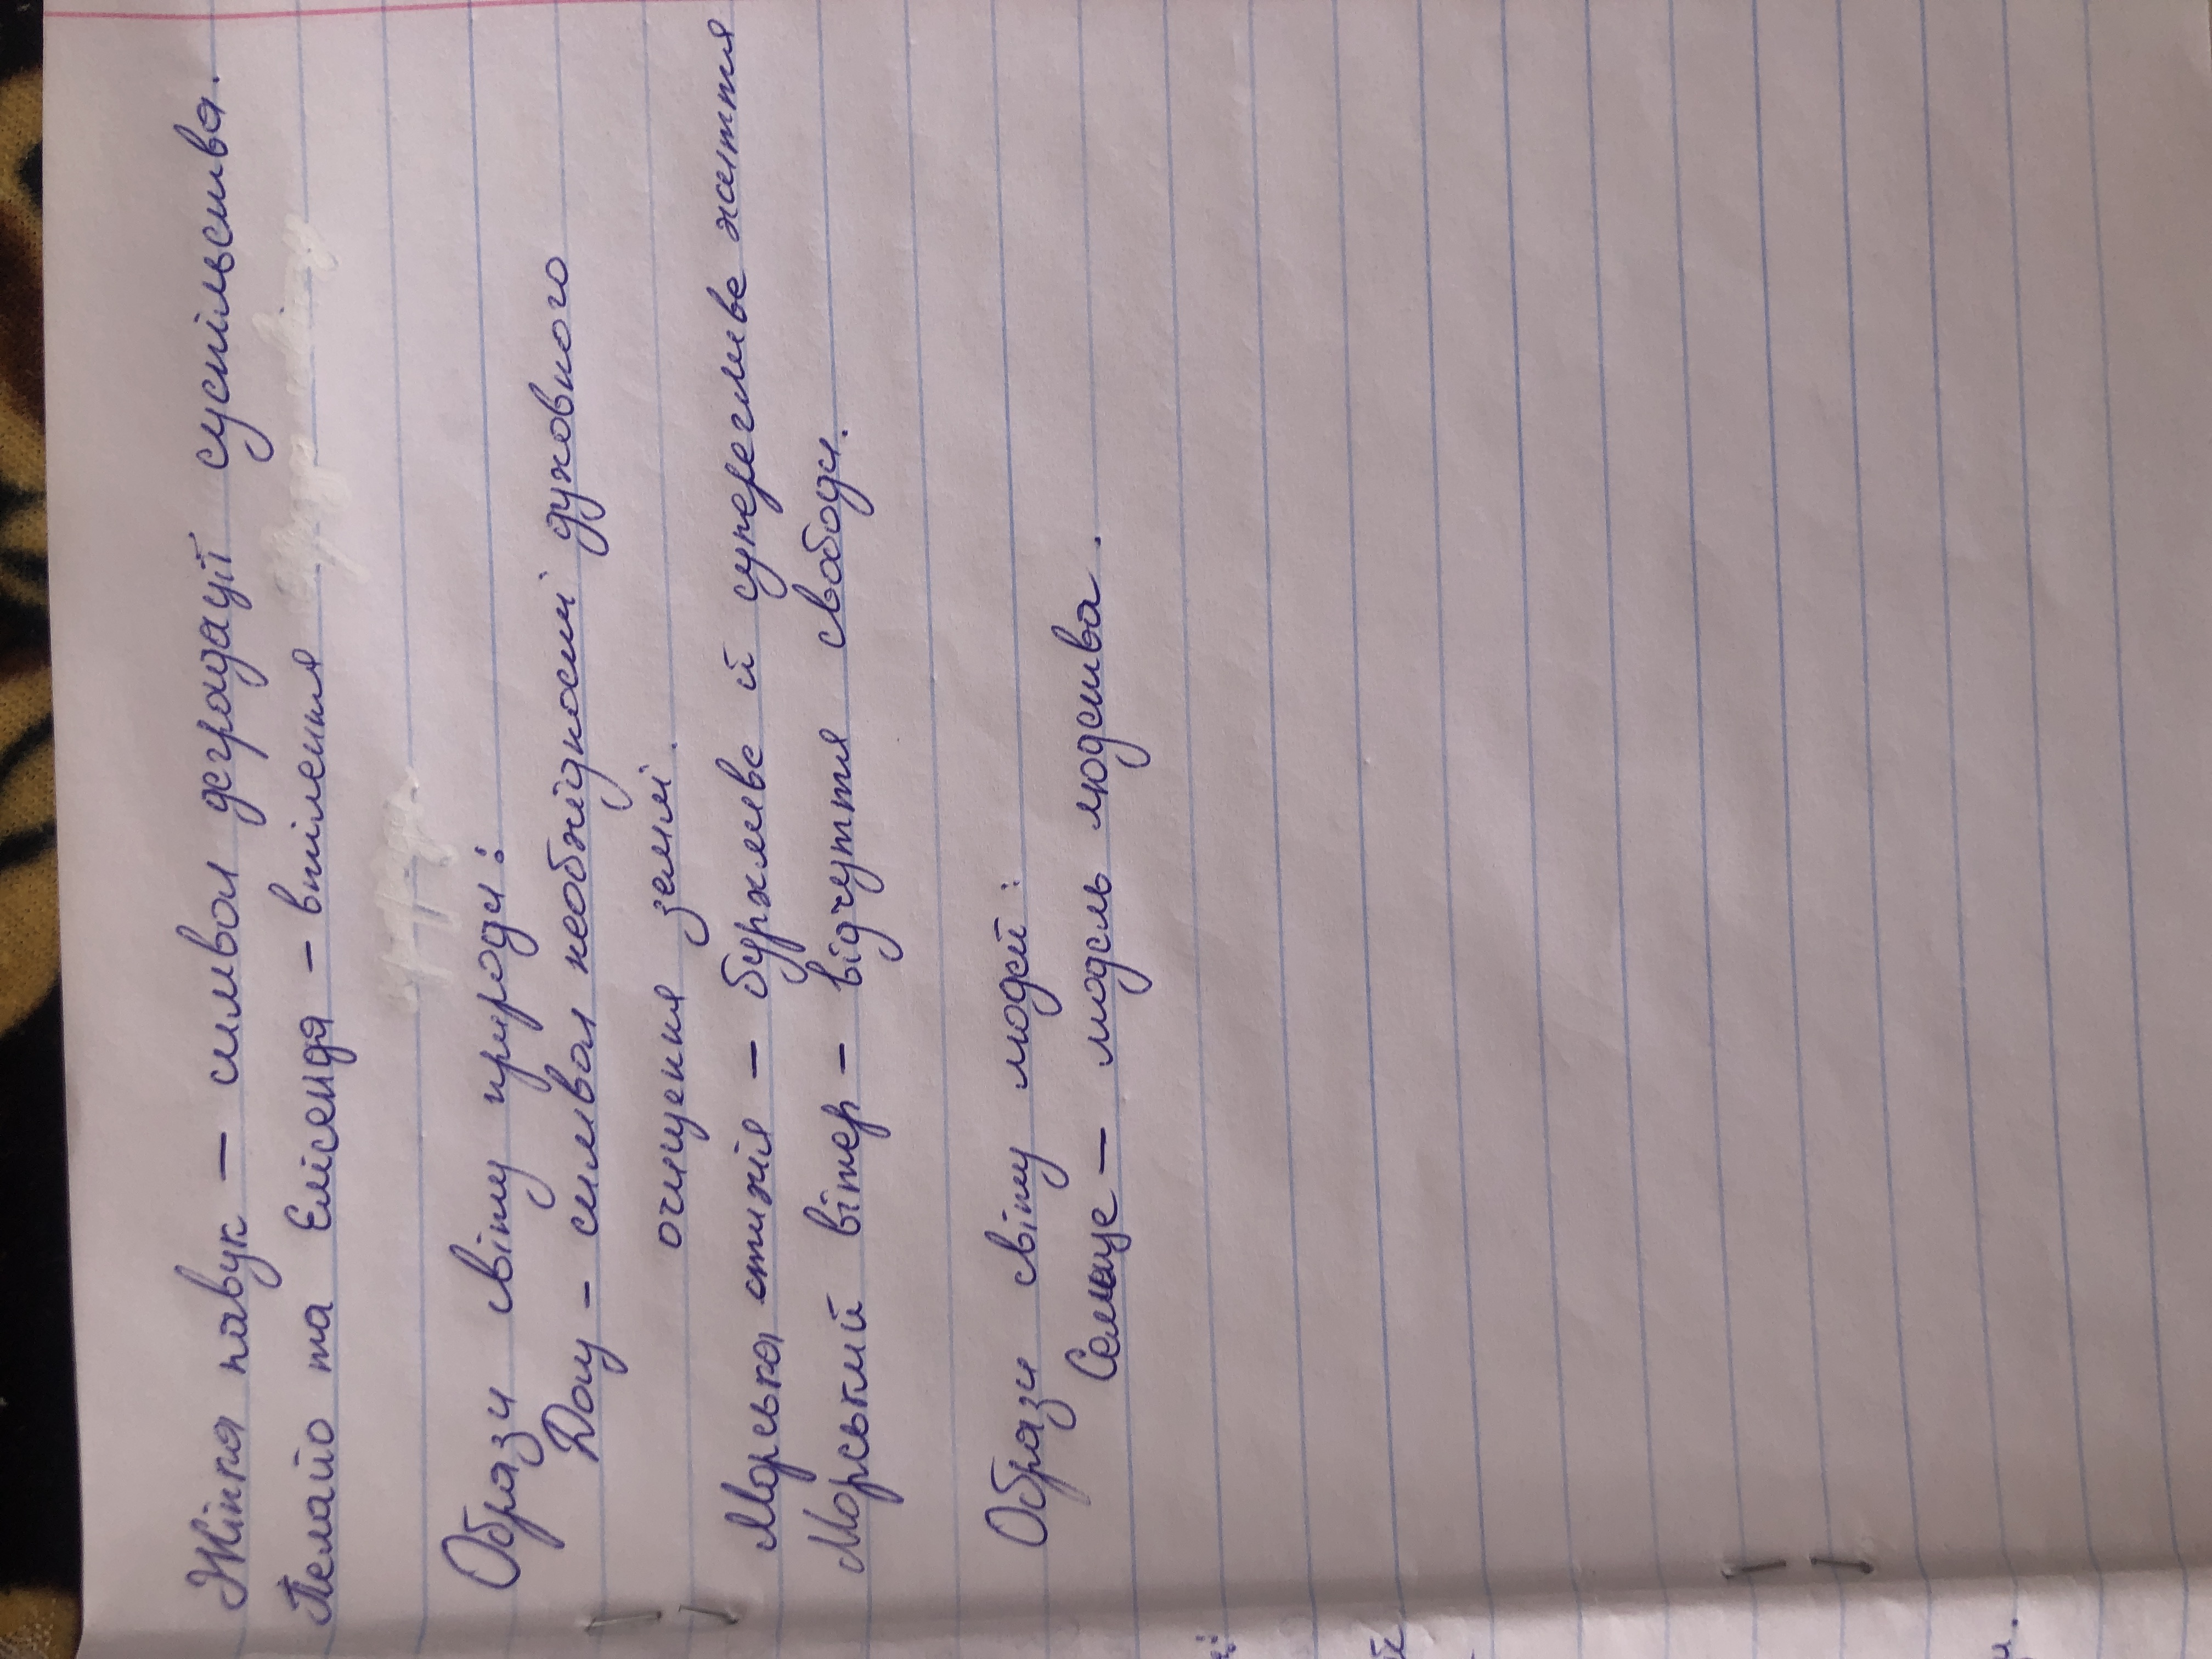 Жінка павук – символ деградації суспільства.
Пелайо та Елісенда – втілення
Образи світу природи:
Дощ – символ необхідності духовного
очищення землі.
Морська стихія – бурхливе й суперечливе життя
Морський вітер – відчуття свободи.
Образи світу людей:
Селище – модель людства.